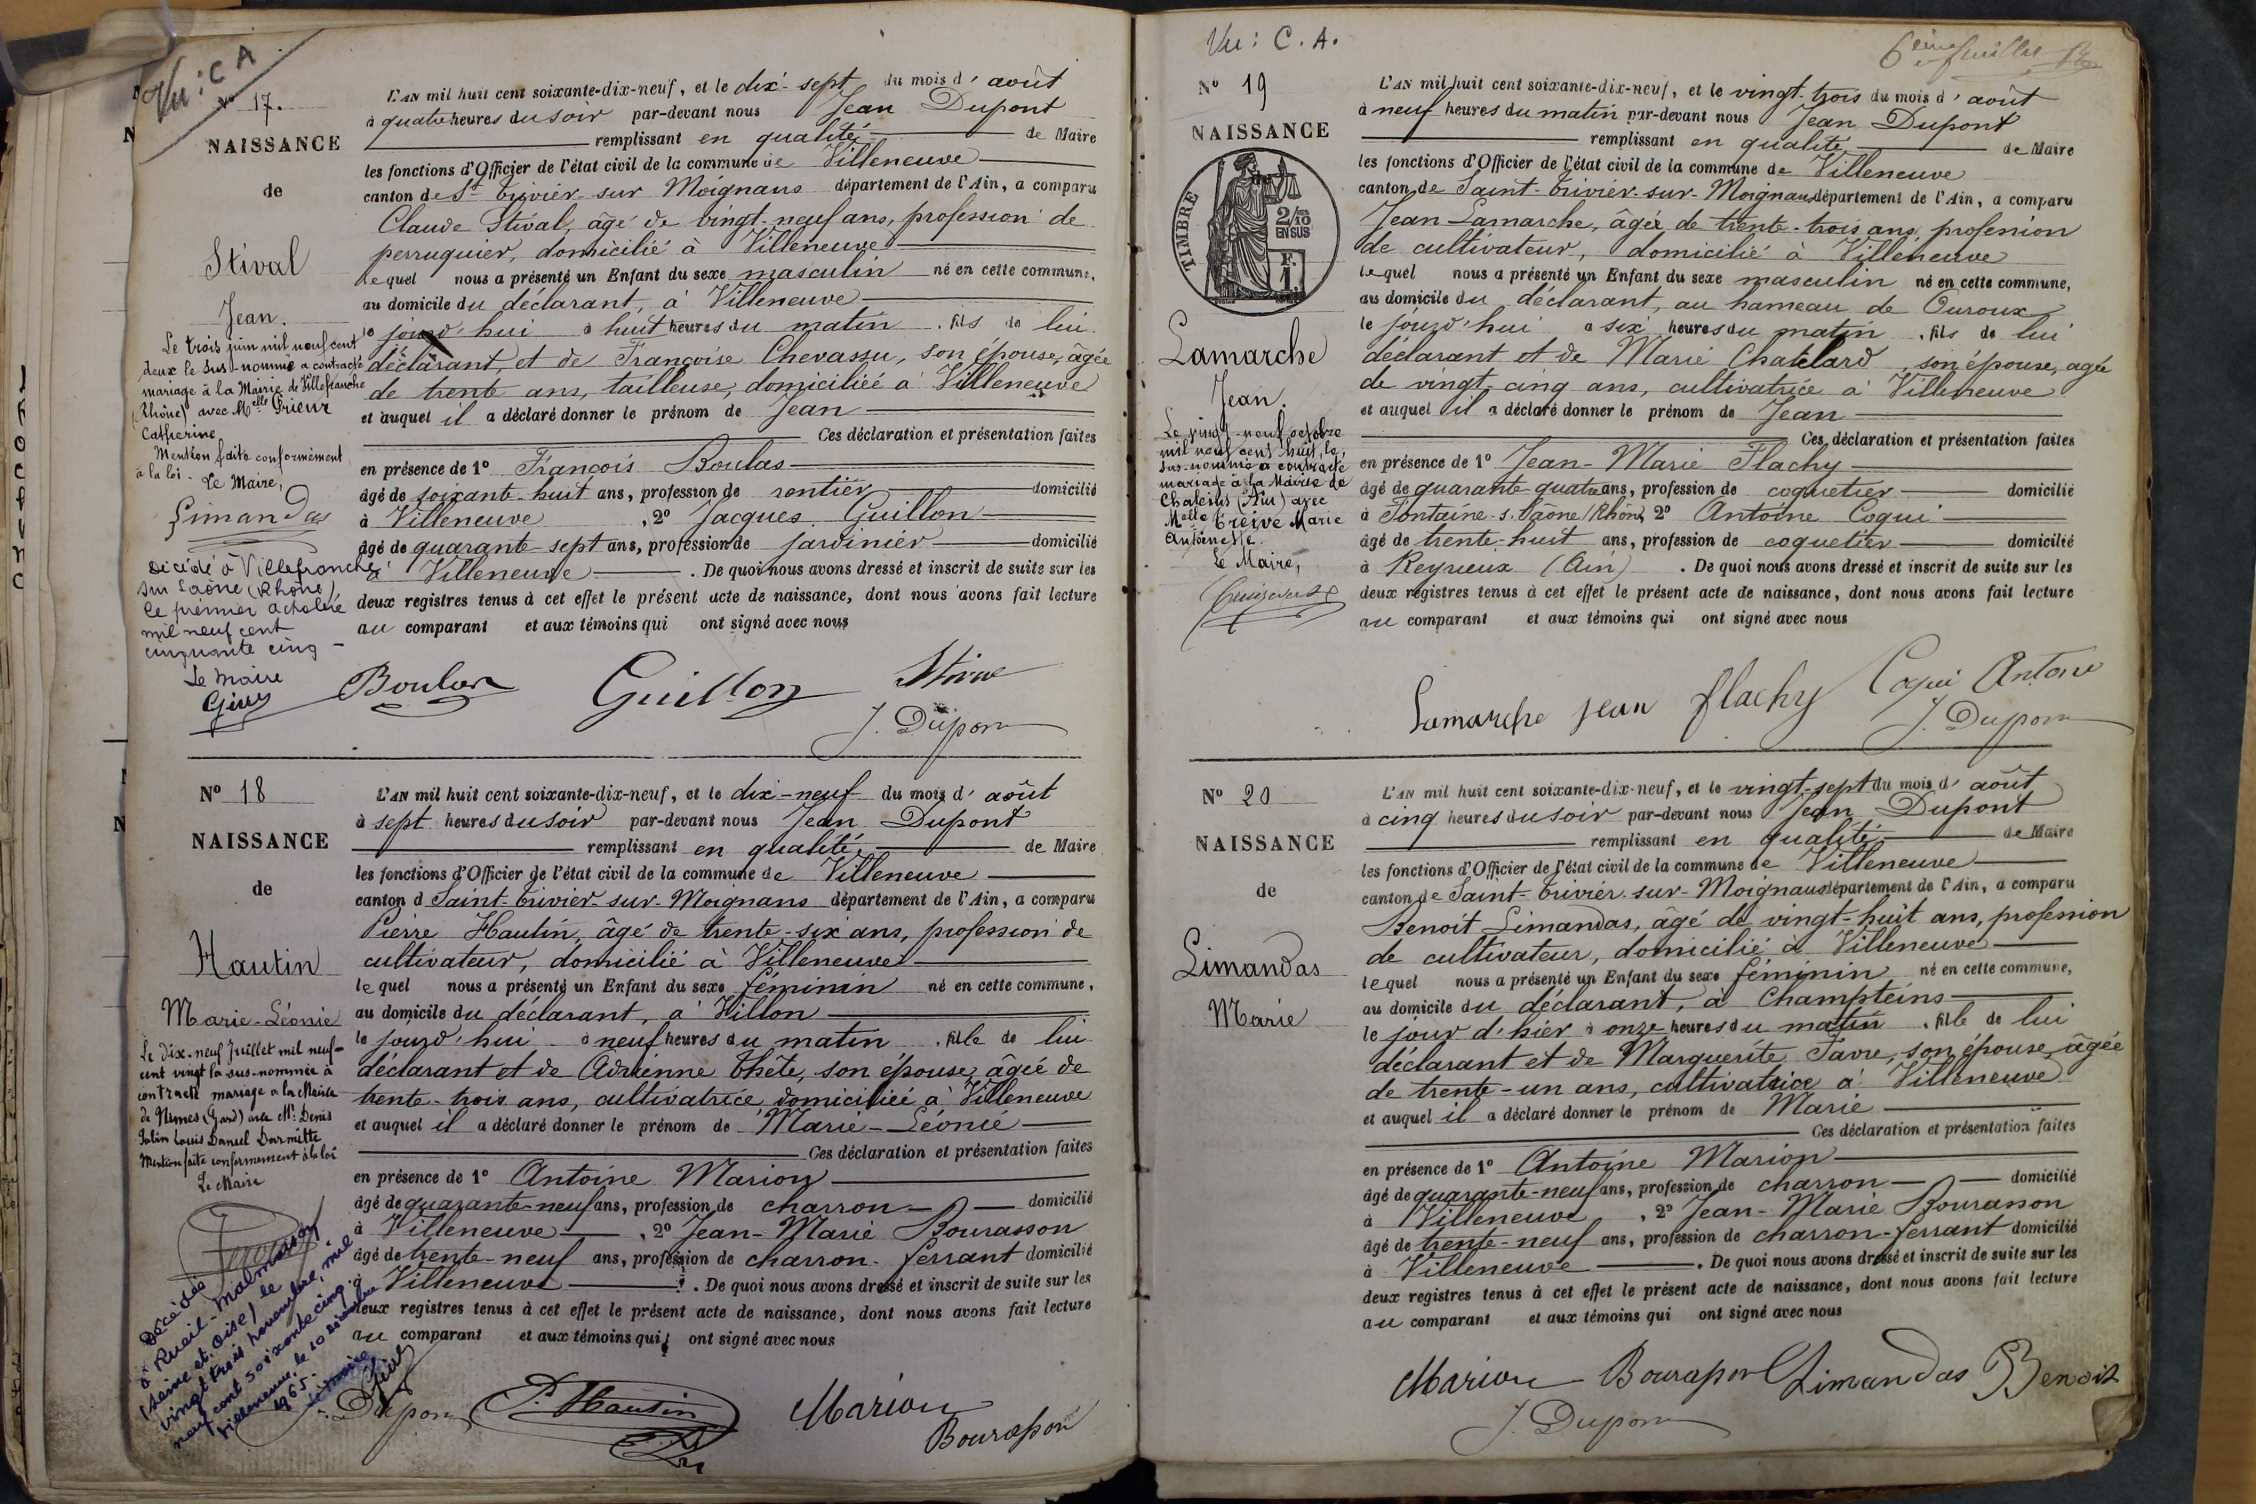 Vu : C A
N° 17.
NAISSANCE
de
Stival
Jean.
Le trois juin mil neuf cent
deux le sus-nommé a contracté
mariage à la Mairie de Villefranche
(Rhône) avec Melle Prieur
Catherine
Mention faite conformément
à la loi - Le Maire,
Limandas
Décédé à Villefranche
sur Saône (Rhône)
le premier octobre
mil neuf cent
cinquante cinq -
Le Maire
L'AN mil huit cent soixante-dix-neuf, et le dix-sept du mois d'août
à quatre heures du soir par-devant nous Jean Dupont
remplissant en qualité de Maire
les fonctions d'Officier de l'état civil de la commune de Villeneuve
canton de St Trivier-sur Moignans département de l'Ain, a comparu
Claude Stival, âgé de vingt-neuf ans, profession de
perruquier, domicilié à Villeneuve
lequel nous a présenté un Enfant du sexe masculin né en cette commune,
au domicile du déclarant, à Villeneuve
le jourd'hui à huit heures du matin, fils de lui
déclarant, et de Françoise Chevassu, son épouse, âgée
de trente ans, tailleuse, domiciliée à Villeneuve
et auquel il a déclaré donner le prénom de Jean
Ces déclaration et présentation faites
en présence de 1° François Boulas
âgé de soixante-huit ans, profession de rentier domicilié
à Villeneuve, 2° Jacques Guillon
âgé de quarante-sept ans, profession de jardinier domicilié
à Villeneuve. De quoi nous avons dressé et inscrit de suite sur les
deux registres tenus à cet effet le présent acte de naissance, dont nous avons fait lecture
au comparant et aux témoins qui ont signé avec nous
Guillon
J. Dupont
N° 18
NAISSANCE
de
Hautin
Marie-Léonie
Le dix-neuf Juillet mil neuf-
cent vingt la sus-nommée a
contracté mariage à la Mairie
de Nîmes (Gard) avec Mr Denis
Louis Daniel
Mention faite conformément à la loi
Le Maire
Décédée
à Rueil-Malmaison
(Seine et Oise) le
vingt trois novembre, mil
neuf cent soixante cinq.
Villeneuve, le 10 décembre
1965.
Le Maire
L'AN mil huit cent soixante-dix-neuf, et le dix-neuf du mois d'août
à sept heures du soir par-devant nous Jean Dupont
remplissant en qualité de Maire
les fonctions d'Officier de l'état civil de la commune de Villeneuve
canton d Saint-Trivier-sur-Moignans département de l'Ain, a comparu
Pierre Hautin, âgé de trente-six ans, profession de
cultivateur, domicilié à Villeneuve
lequel nous a présenté un Enfant du sexe féminin né en cette commune,
au domicile du déclarant, à Villon
le jourd'hui à neuf heures du matin, fille de lui
déclarant et de Adrienne Thête, son épouse, âgée de
trente-trois ans, cultivatrice domiciliée à Villeneuve
et auquel il a déclaré donner le prénom de Marie-Léonie
Ces déclaration et présentation faites
en présence de 1° Antoine Marion
âgé de quarante-neuf ans, profession de charron domicilié
à Villeneuve, 2° Jean-Marie Bourasson
âgé de trente-neuf ans, profession de charron-ferrant domicilié
à Villeneuve. De quoi nous avons dressé et inscrit de suite sur les
deux registres tenus à cet effet le présent acte de naissance, dont nous avons fait lecture
au comparant et aux témoins qui ont signé avec nous
J. Dupont P. Hautin Marion
Bourasson
Vu : C. A.
6ème feuillet
N° 19
NAISSANCE
TIMBRE
2/10
EN SUS
F.
1
Lamarche
Jean.
Le vingt-neuf octobre
mil neuf cent huit, le
sus-nommé a contracté
mariage à la Mairie de
Chaleins (Ain) avec
Melle Treive Marie
Antoinette.
Le Maire,
L'AN mil huit cent soixante-dix-neuf, et le vingt-trois du mois d'août
à neuf heures du matin par-devant nous Jean Dupont
remplissant en qualité de Maire
les fonctions d'Officier de l'état civil de la commune de Villeneuve
canton de Saint-Trivier-sur-Moignans département de l'Ain, a comparu
Jean Lamarche, âgé de trente-trois ans, profession
de cultivateur, domicilié à Villeneuve
lequel nous a présenté un Enfant du sexe masculin né en cette commune,
au domicile du déclarant, au hameau de Ouroux
le jourd'hui à six heures du matin, fils de lui
déclarant et de Marie Chatelard son épouse, âgée
de vingt-cinq ans, cultivatrice à Villeneuve
et auquel il a déclaré donner le prénom de Jean
Ces déclaration et présentation faites
en présence de 1° Jean-Marie Flachy
âgé de quarante-quatre ans, profession de coquetier domicilié
à Fontaine-s.-Saône (Rhône), 2° Antoine Coqui
âgé de trente-huit ans, profession de coquetier domicilié
à Reyrieux (Ain). De quoi nous avons dressé et inscrit de suite sur les
deux registres tenus à cet effet le présent acte de naissance, dont nous avons fait lecture
au comparant et aux témoins qui ont signé avec nous
Lamarche jean flachy Coqui Antoine
J. Dupont
N° 20
NAISSANCE
de
Limandas
Marie
L'AN mil huit cent soixante-dix-neuf, et le vingt-sept du mois d'août
à cinq heures du soir par-devant nous Jean Dupont
remplissant en qualité de Maire
les fonctions d'Officier de l'état civil de la commune de Villeneuve
canton de Saint-Trivier-sur-Moignans département de l'Ain, a comparu
Benoit Limandas, âgé de vingt-huit ans, profession
de cultivateur, domicilié à Villeneuve
lequel nous a présenté un Enfant du sexe féminin né en cette commune,
au domicile du déclarant, à Champteins
le jour d'hier à onze heures du matin, fille de lui
déclarant et de Marguerite Favre, son épouse, âgée
de trente-un ans, cultivatrice à Villeneuve
et auquel il a déclaré donner le prénom de Marie
Ces déclaration et présentation faites
en présence de 1° Antoine Marion
âgé de quarante-neuf ans, profession de charron domicilié
à Villeneuve, 2° Jean-Marie Bourasson
âgé de trente-neuf ans, profession de charron-ferrant domicilié
à Villeneuve. De quoi nous avons dressé et inscrit de suite sur les
deux registres tenus à cet effet le présent acte de naissance, dont nous avons fait lecture
au comparant et aux témoins qui ont signé avec nous
Marion Bourasson Limandas Benoit
J. Dupont